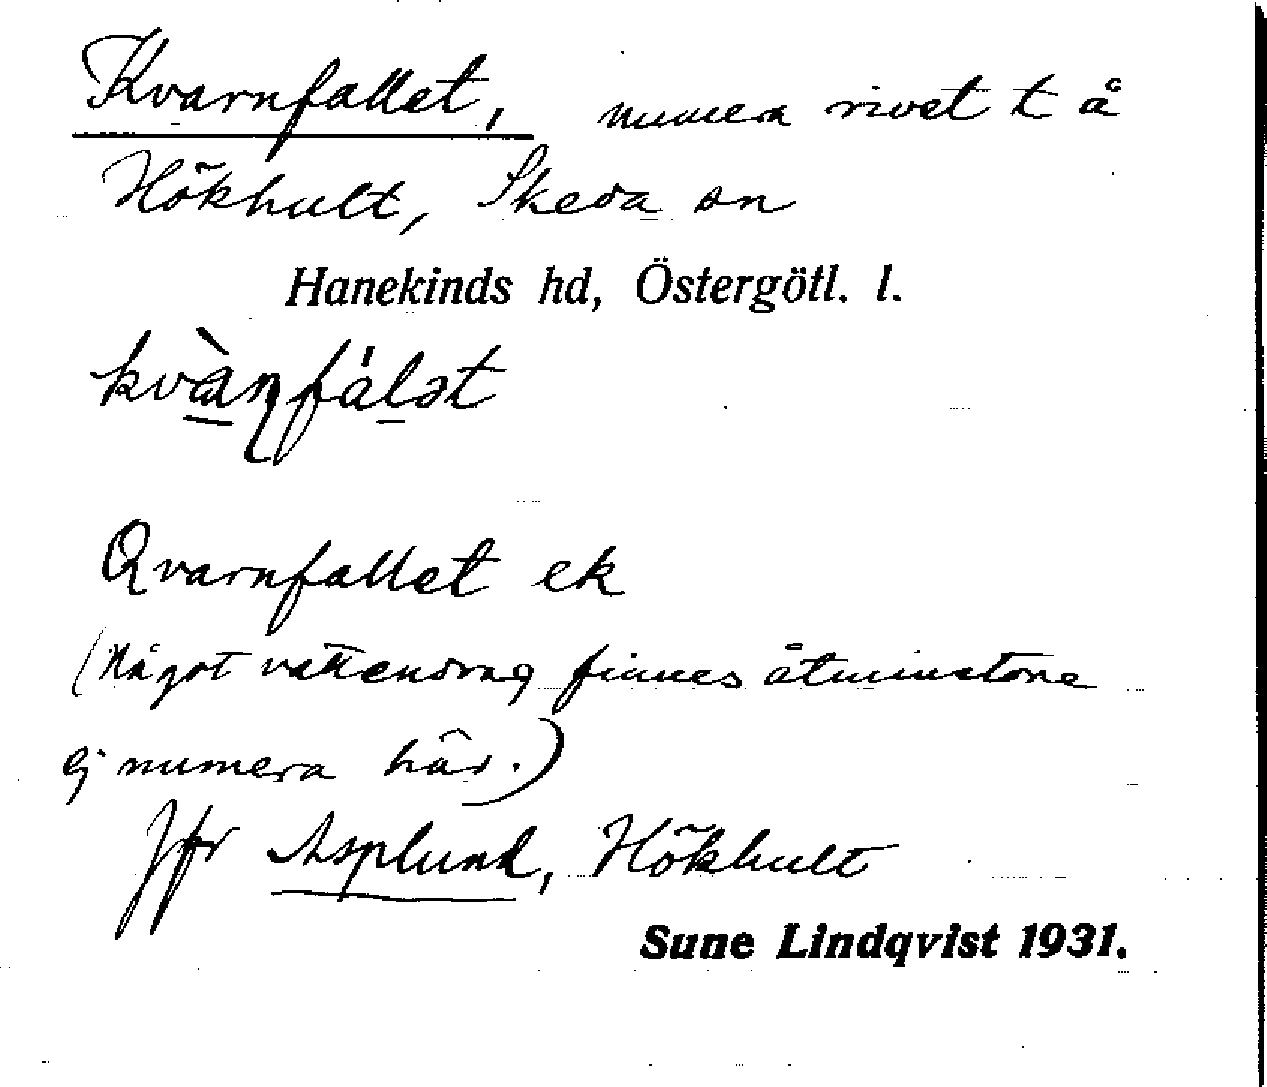 Kvarnfallet, numera rivet t å
Hökhult, Skeda sn
Hanekinds hd, Östergötl. l.
kvànfálət
Qvarnfallet ek
(Något vattendrag finnes åtminstone
ej numera här.)
Jfr Asplund, Hökhult
Sune Lindqvist 1931.